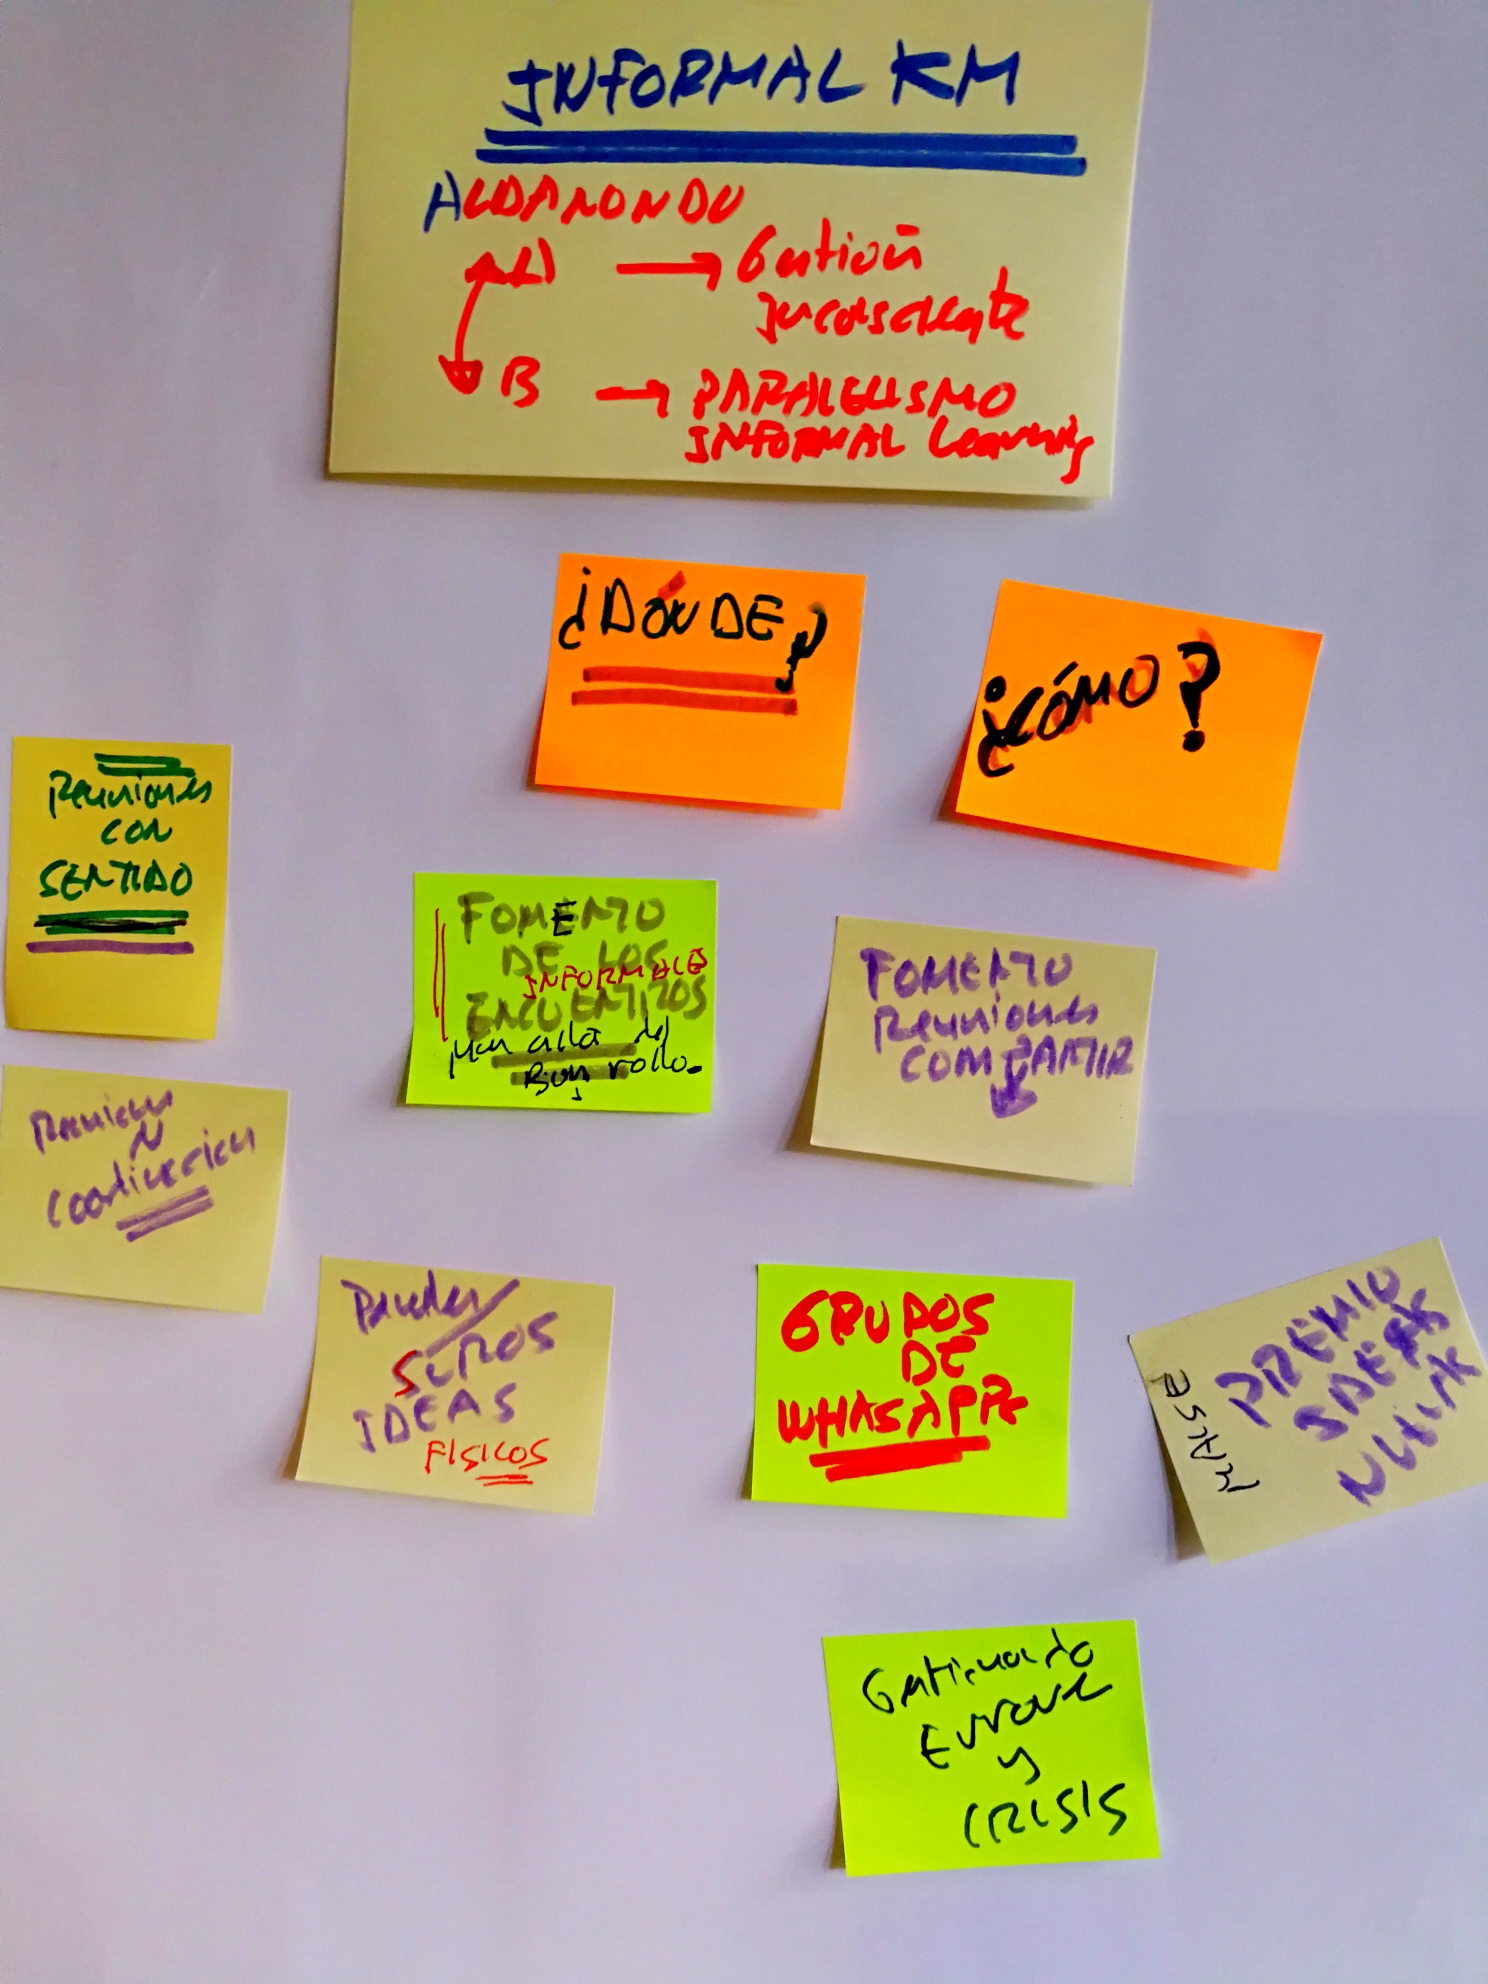 INFORMAL KM
ALDAMONDO
A) → Gestión
Inconsciente
B → PARALELISMO
INFORMAL Learning
¿DÓNDE?
¿CÓMO?
Reuniones
CON
SENTIDO
FOMENTO
DE LOS
INFORMALES
ENCUENTROS
Mas allá del
Buen rollo.
FOMENTO
Reuniones
COMPARTIR
Reuniones
Coordinación
SITIOS
IDEAS
FISICOS
GRUPOS
DE
WHASAPPs
PREMIO
IDEAS
Gestionando
Errores
y
CRISIS